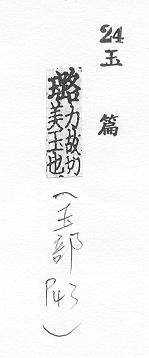 24玉篇
璐力故切
美玉也
(玉部P43)